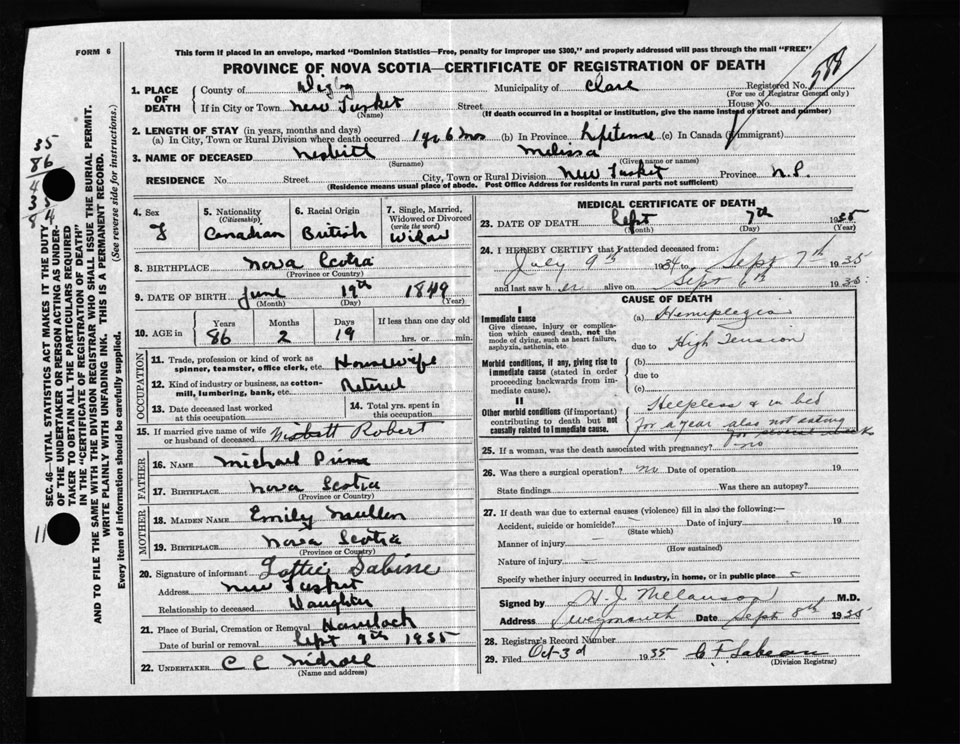 FORM 6
This form if placed in an envelope, marked "Dominion Statistics—Free, penalty for improper use $300," and properly addressed will pass through the mail "FREE"
PROVINCE OF NOVA SCOTIA—CERTIFICATE OF REGISTRATION OF DEATH
588
1. PLACE OF DEATH County of Digby Municipality of Clare Registered No.
(For use of Registrar General only)
If in City or Town New Tusket Street House No.
(Name) (If death occurred in a hospital or institution, give its name instead of street and number)
2. LENGTH OF STAY (in years, months and days)
(a) In City, Town or Rural Division where death occurred 1 yr 6 mos (b) In Province Lifetime (c) In Canada (if immigrant)
3. NAME OF DECEASED Nesbitt Melissa
(Surname) (Given name or names)
RESIDENCE No. Street City, Town or Rural Division New Tusket Province N.S.
(Residence means usual place of abode. Post Office Address for residents in rural parts not sufficient)
4. Sex F
5. Nationality (Citizenship) Canadian
6. Racial Origin British
7. Single, Married, Widowed or Divorced (write the word) Widow
8. BIRTHPLACE Nova Scotia
(Province or Country)
9. DATE OF BIRTH June 19th 1849
(Month) (Day) (Year)
10. AGE in Years 86 Months 2 Days 19 If less than one day old hrs. or min.
OCCUPATION
11. Trade, profession or kind of work as spinner, teamster, office clerk, etc. Housewife
12. Kind of industry or business, as cotton-mill, lumbering, bank, etc. Retired
13. Date deceased last worked at this occupation
14. Total yrs. spent in this occupation
15. If married give name of wife or husband of deceased Nisbett Robert
FATHER
16. NAME Michael Prime
17. BIRTHPLACE Nova Scotia
(Province or Country)
MOTHER
18. MAIDEN NAME Emily
19. BIRTHPLACE Nova Scotia
(Province or Country)
20. Signature of informant Lottie Sabine
Address New Tusket
Relationship to deceased Daughter
21. Place of Burial, Cremation or Removal Havelock
Date of burial or removal Sept 9th 1935
22. UNDERTAKER C C
(Name and address)
MEDICAL CERTIFICATE OF DEATH
23. DATE OF DEATH Sept 7th 1935
(Month) (Day) (Year)
24. I HEREBY CERTIFY that I attended deceased from:
July 9th 1934 to Sept 7th 1935
and last saw her alive on Sept 6th 1935
CAUSE OF DEATH
I
Immediate cause
Give disease, injury or complication which caused death, not the mode of dying, such as heart failure, asphyxia, asthenia, etc.
(a) Hemiplegia
due to High Tension
Morbid conditions, if any, giving rise to immediate cause (stated in order proceeding backwards from immediate cause).
(b)
due to
(c)
II
Other morbid conditions (if important) contributing to death but not causally related to immediate cause.
Helpless & in bed
for a year also not eating
for several weeks
25. If a woman, was the death associated with pregnancy? no
26. Was there a surgical operation? no Date of operation 19
State findings Was there an autopsy?
27. If death was due to external causes (violence) fill in also the following:—
Accident, suicide or homicide? Date of injury 19
(State which)
Manner of injury
(How sustained)
Nature of injury
Specify whether injury occurred in industry, in home, or in public place
Signed by H. J. Melanson M.D.
Address Weymouth Date Sept 8th 1935
28. Registrar's Record Number
29. Filed Oct 3d 1935 C F Sabean
(Division Registrar)
SEC. 46—VITAL STATISTICS ACT MAKES IT THE DUTY
OF THE UNDERTAKER OR PERSON ACTING AS UNDER-
TAKER TO OBTAIN ALL THE PARTICULARS REQUIRED
IN THE "CERTIFICATE OF REGISTRATION OF DEATH"
AND TO FILE THE SAME WITH THE DIVISION REGISTRAR WHO SHALL ISSUE THE BURIAL PERMIT.
WRITE PLAINLY WITH UNFADING INK. THIS IS A PERMANENT RECORD.
Every item of information should be carefully supplied. (See reverse side for instructions.)
35
86
11